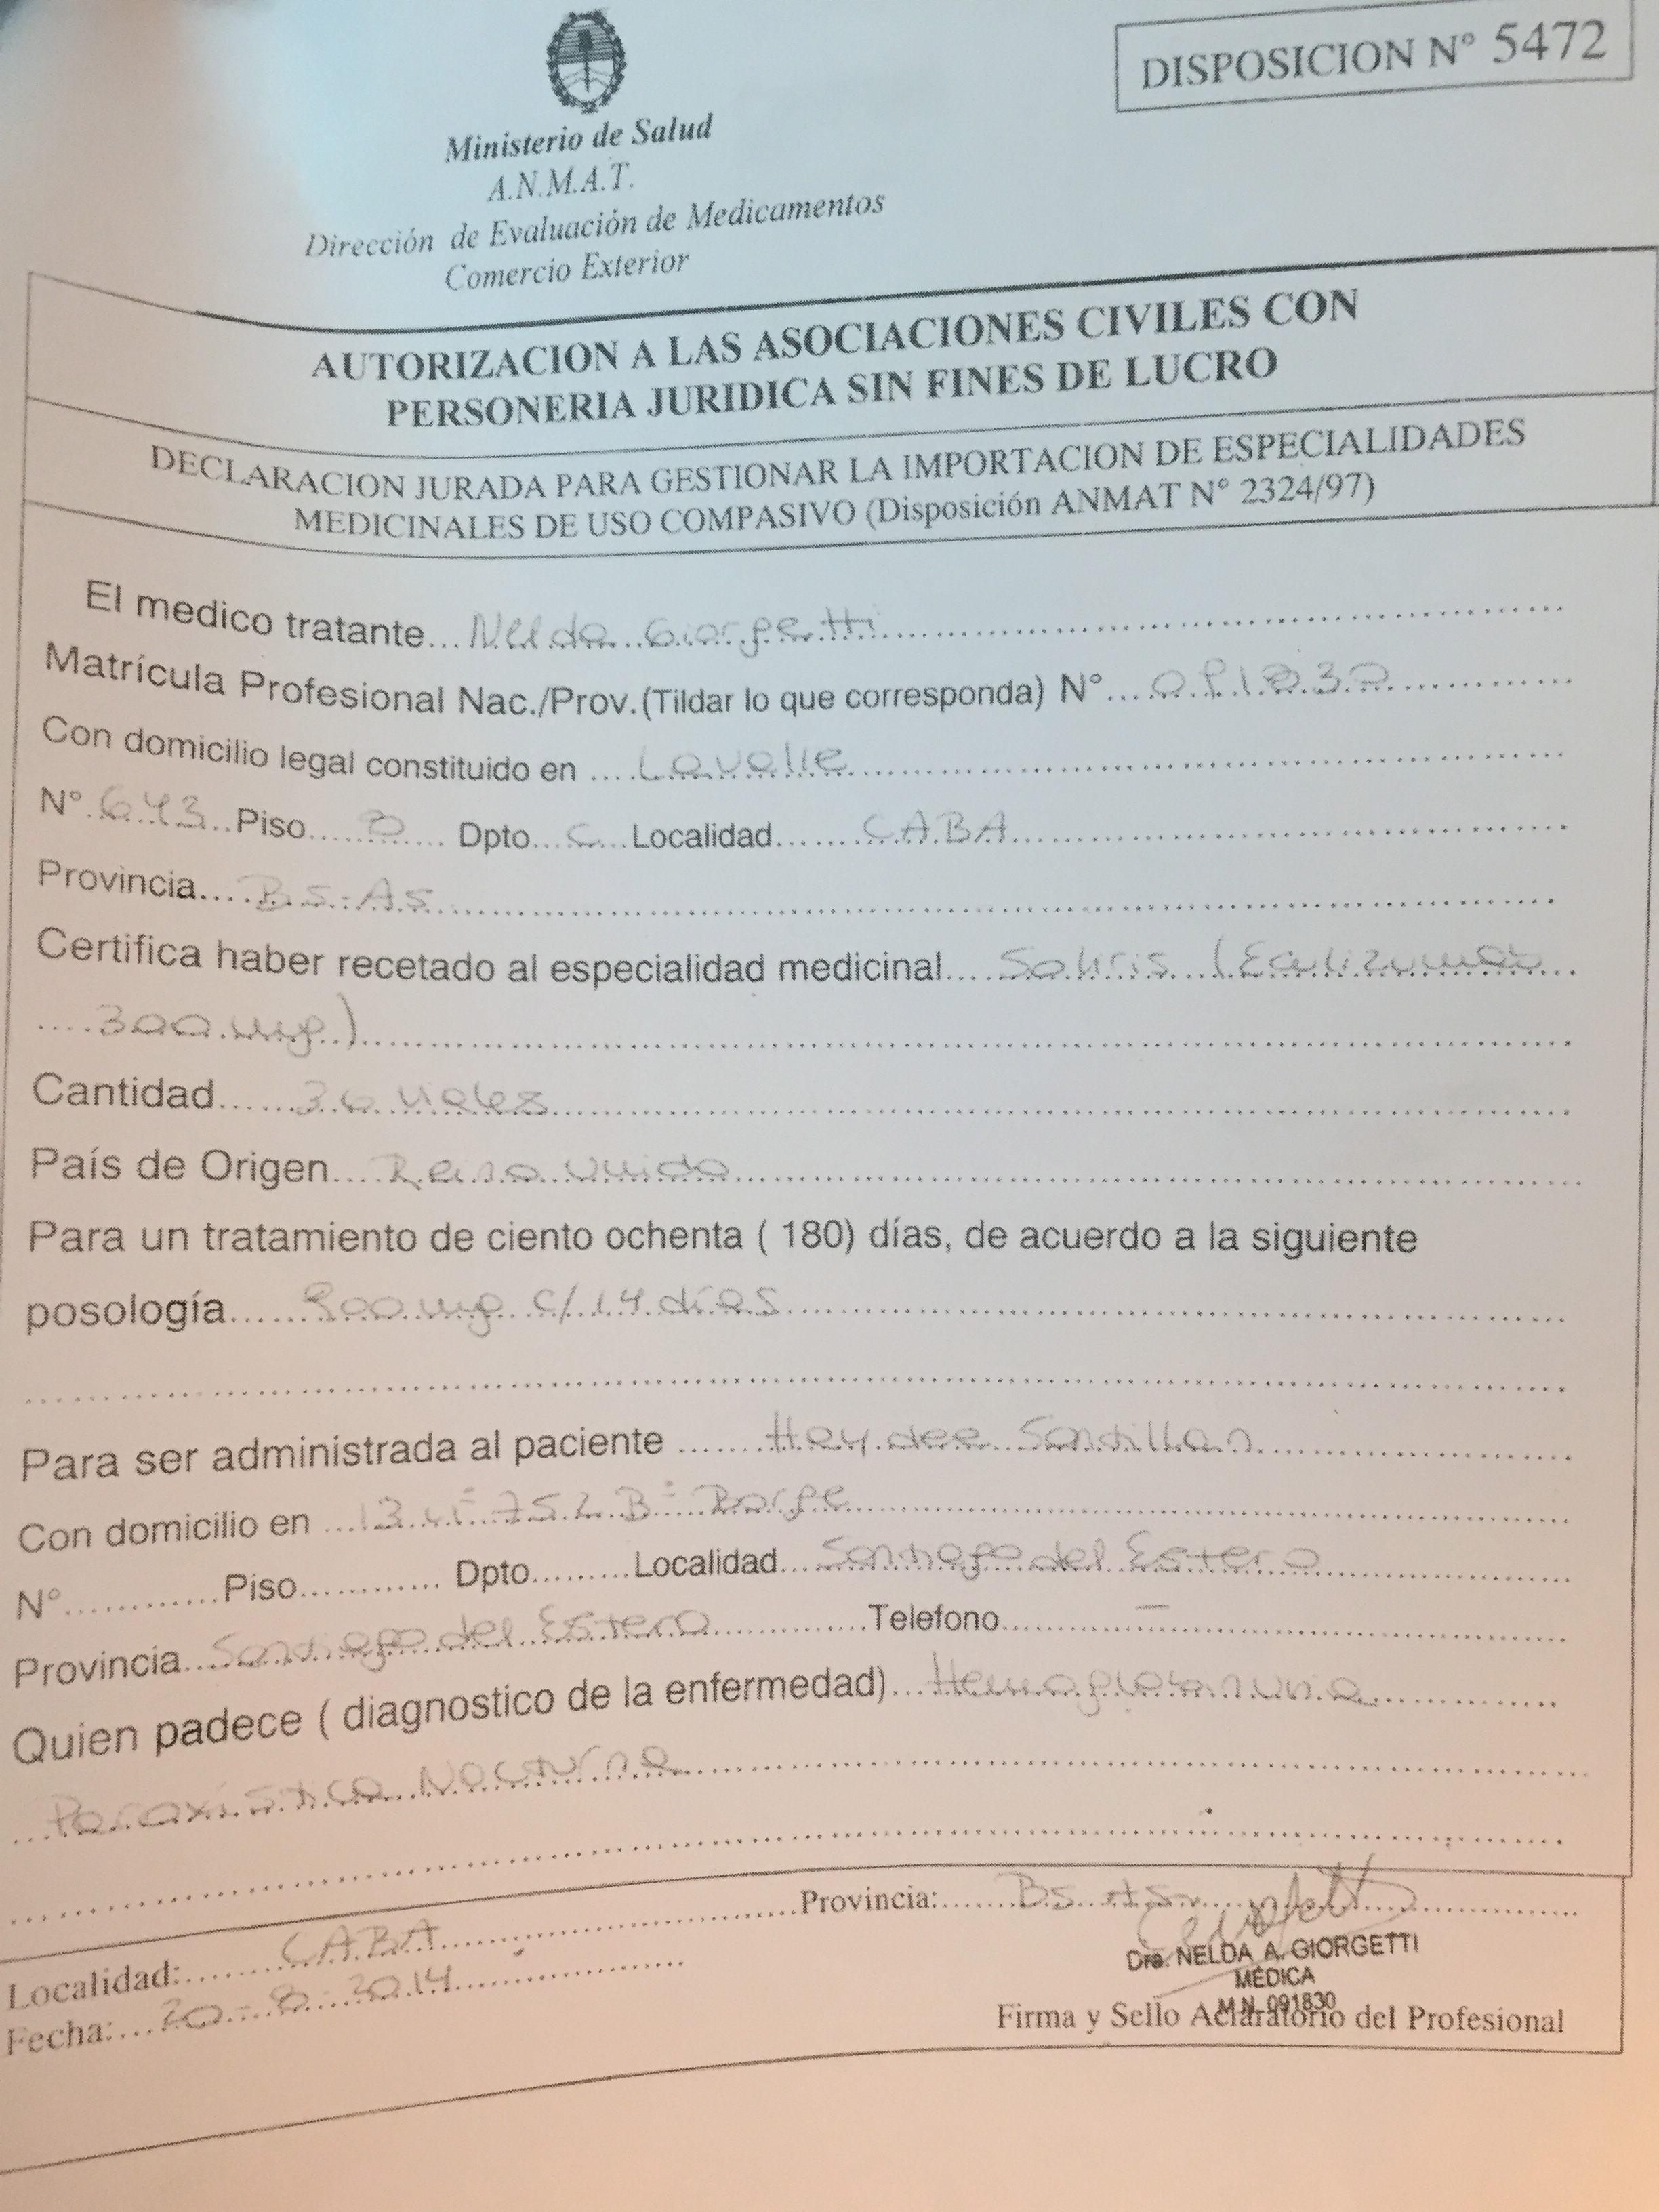 DISPOSICION N° 5472
Ministerio de Salud
A.N.M.A.T.
Dirección de Evaluación de Medicamentos
Comercio Exterior
AUTORIZACION A LAS ASOCIACIONES CIVILES CON
PERSONERIA JURIDICA SIN FINES DE LUCRO
DECLARACION JURADA PARA GESTIONAR LA IMPORTACION DE ESPECIALIDADES
MEDICINALES DE USO COMPASIVO (Disposición ANMAT N° 2324/97)
El medico tratante... Nelda Giorgetti
Matrícula Profesional Nac./Prov.(Tildar lo que corresponda) N°.... 091830
Con domicilio legal constituido en .... Lavalle
N°. 643 Piso..... Dpto... C Localidad...... CABA
Provincia.... Bs. As
Certifica haber recetado al especialidad medicinal.... Soliris (Eculizumab
.... 300 mg)
Cantidad...... 36 viales
País de Origen.... Reino Unido
Para un tratamiento de ciento ochenta ( 180) días, de acuerdo a la siguiente
posología...... 900 mg c/14 días
Para ser administrada al paciente ...... Haydee Santillan
Con domicilio en ... 13 75
N°............Piso............ Dpto.........Localidad.... Santiago del Estero
Provincia... Santiago del Estero Telefono... –
Quien padece ( diagnostico de la enfermedad)... Hemoglobinuria
... Paroxística Nocturna
Localidad:...... CABA Provincia:...... Bs. As.
Fecha:.... 20-8-2014
Dra. NELDA A. GIORGETTI
MEDICA
M.N. 091830
Firma y Sello Aclaratorio del Profesional